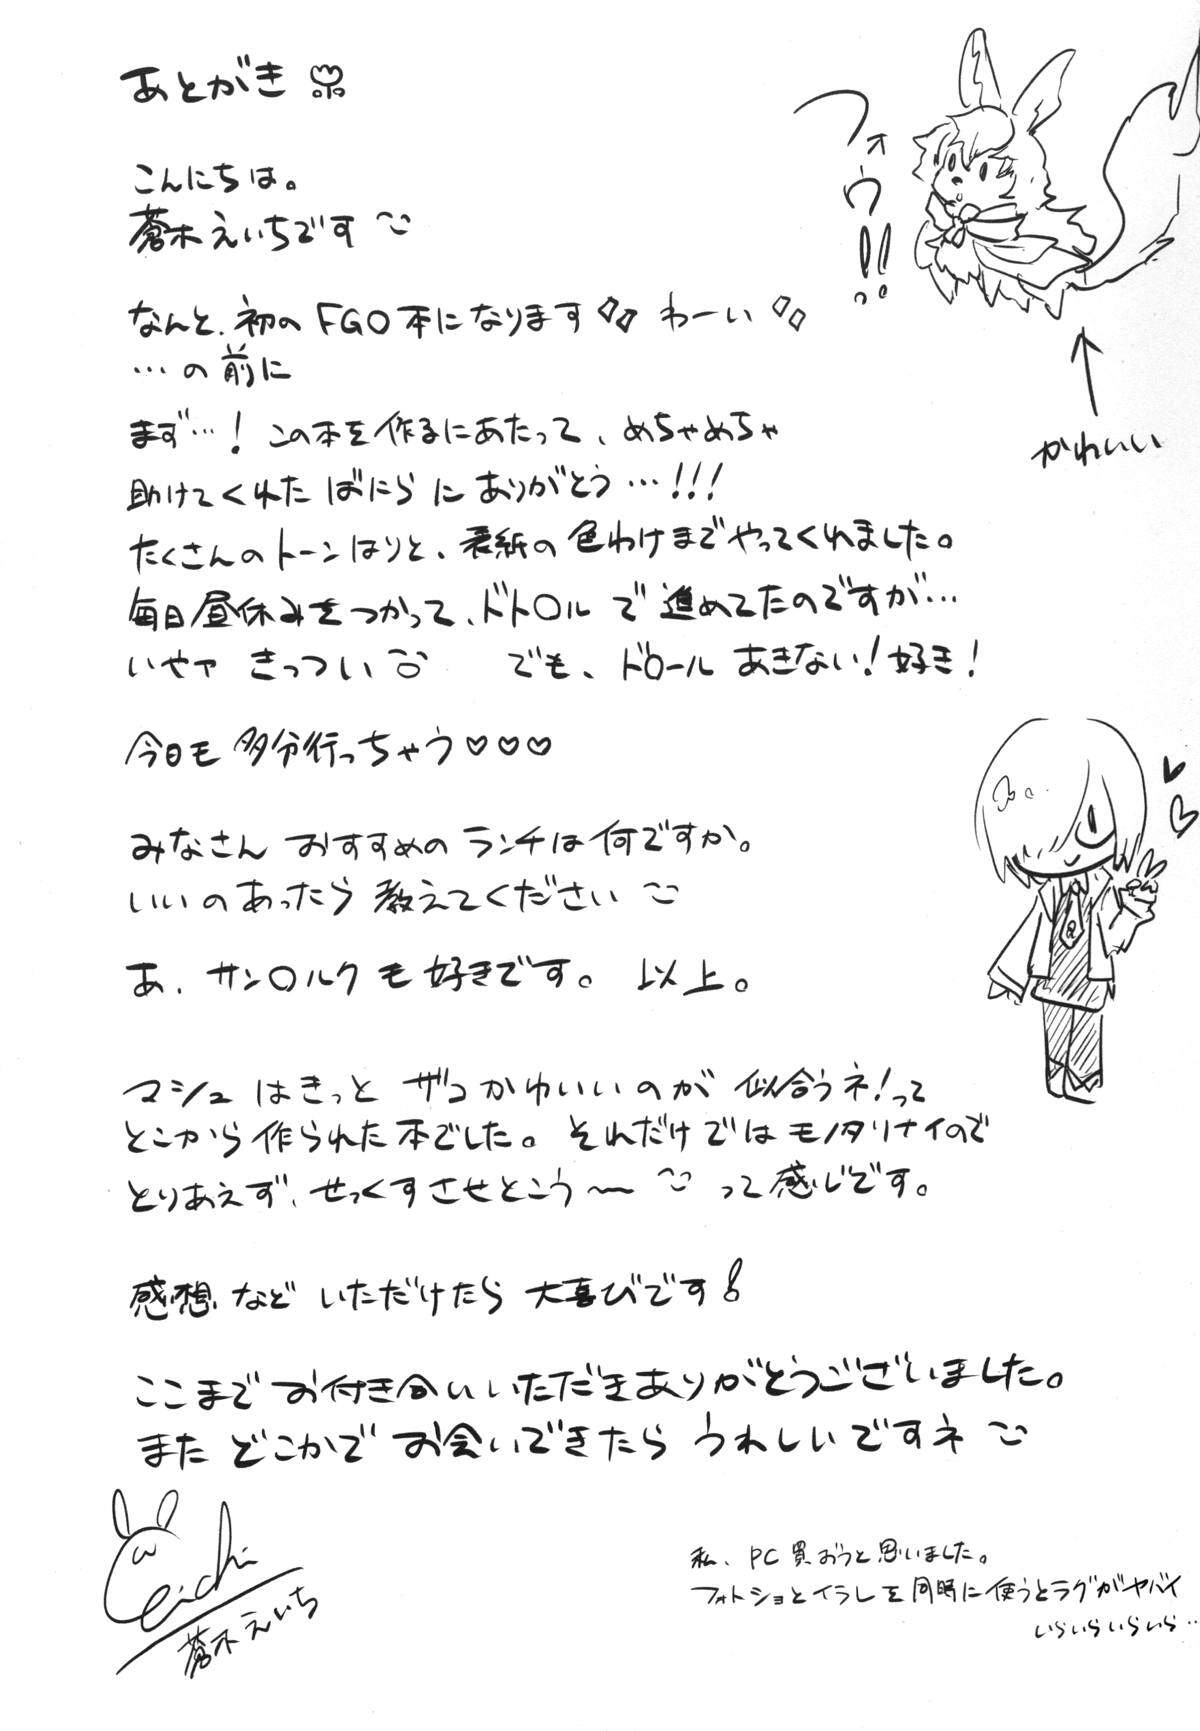 あとがき
フォウ!!
こんにちは。
蒼木えいちです
なんと、初のFGO本になります わーい
…の前に
かわいい
まず…! この本を作るにあたって、めちゃめちゃ
助けてくれた ばにら に ありがとう…!!!
たくさんのトーンはりと、表紙の色わけまでやってくれました。
毎日昼休みをつかって、ドト〇ルで進めてたのですが…
いやァ きっつい でも、ド〇ール あきない! 好き!
今日も多分行っちゃう♡♡♡
みなさん おすすめのランチは何ですか。
いいのあったら教えてください
あ、サン〇ルクも好きです。 以上。
マシュはきっと ザコかわいいのが 似合うネ!って
とこから作られた本でした。それだけではモノタリナイので
とりあえず、せっくすさせとこう〜 って感じです。
感想など いただけたら 大喜びです!
ここまでお付き合いいただきありがとうございました。
また どこかで お会いできたら うれしいですネ
eichi
蒼木えいち
私、PC買おうと思いました。
フォトショとイラレを同時に使うとラグがヤバイ
いらいらいらいら…